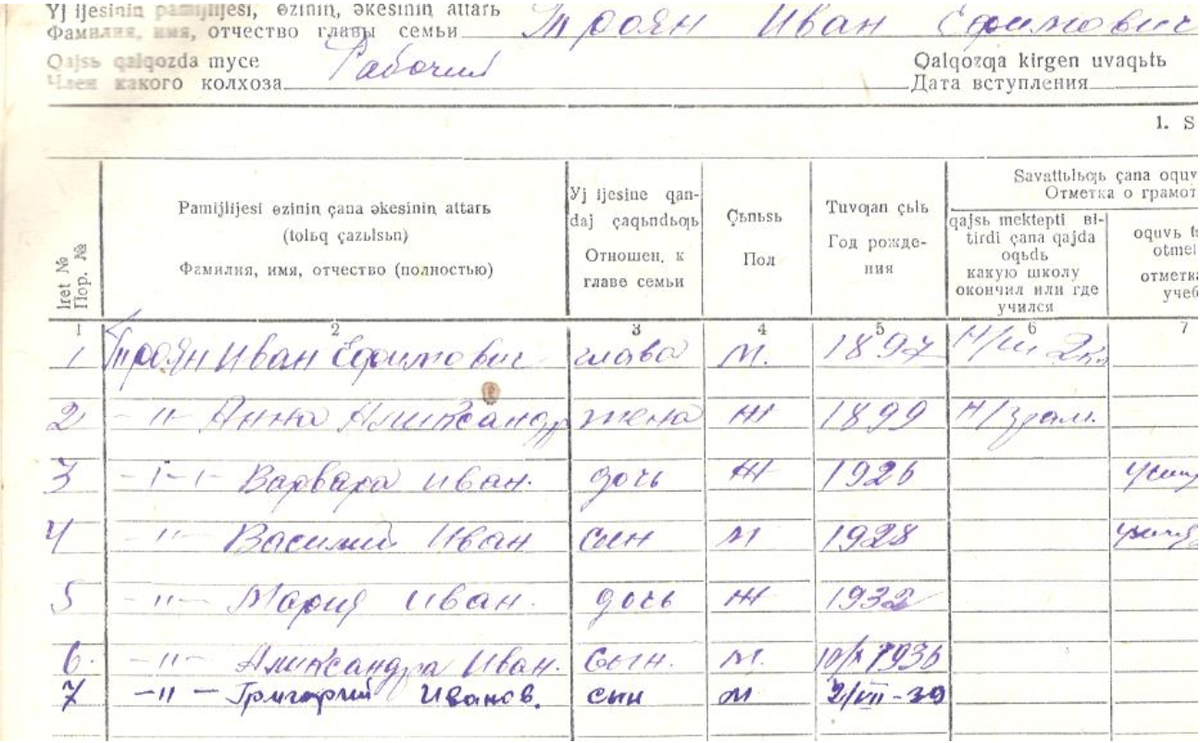 Yj ijesinin pamijlijesi, ɵzinin̡, əkesinin̡ attarь
Фамилия, имя, отчество главы семьи Троян Иван Ефимович
Qajsь qalqozda myce Рабочий Qalqozƣa kirgen uvaqьtь
Член какого колхоза Дата вступления
1. S
Iret №
Пор. №
Pamijlijesi ɵzinin̡ çana əkesinin̡ attarь
(tolьq çazьlsьn)
Фамилия, имя, отчество (полностью)
Yj ijesine qan-
daj çaqьndьƣь
Отношен. к
главе семьи
Çьnьsь
Пол
Tuvƣan çьlь
Год рожде-
ния
Savattьlьƣь çana oquv
Отметка о грамот
qajsь mektepti bi-
tirdi çana qajda
oqьdь
какую школу
окончил или где
учился
oquvь
otme
отметка
учеб
1 2 3 4 5 6 7
1 Троян Иван Ефимович глава М. 1897 Н/ш 2кл
2 -"- Анна Аликсандр жена Ж 1899 Н/грам.
3 -"- Варвара Иван. дочь Ж 1926
4 -"- Василий Иван сын М 1928
5 -"- Мария Иван. дочь Ж 1932
6. -"- Аликсандра Иван. Сын. М. 10/X 1936
7 -"- Григорий Иванов. сын М 2/VII-39